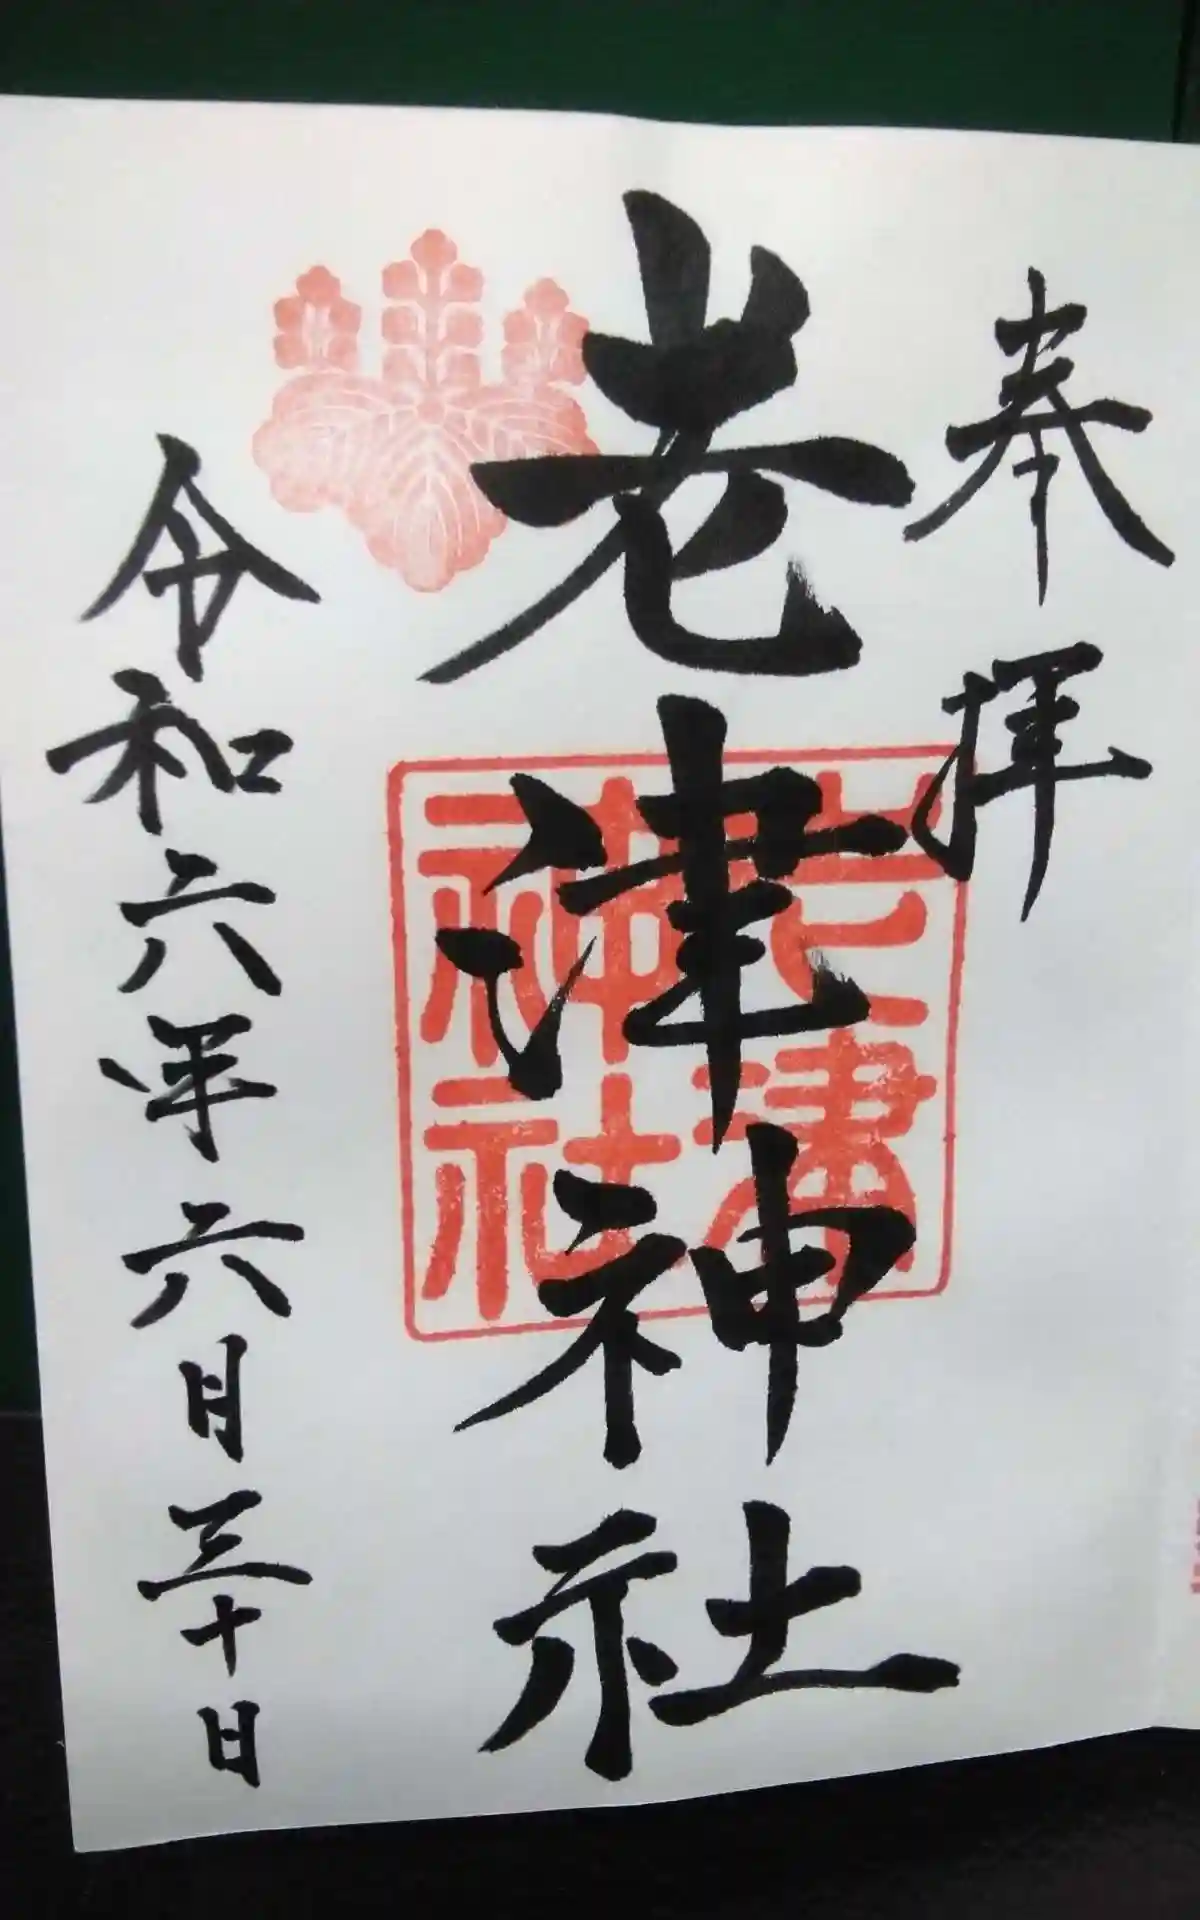 奉拝
老津神社
老津
神社
令和六年六月三十日